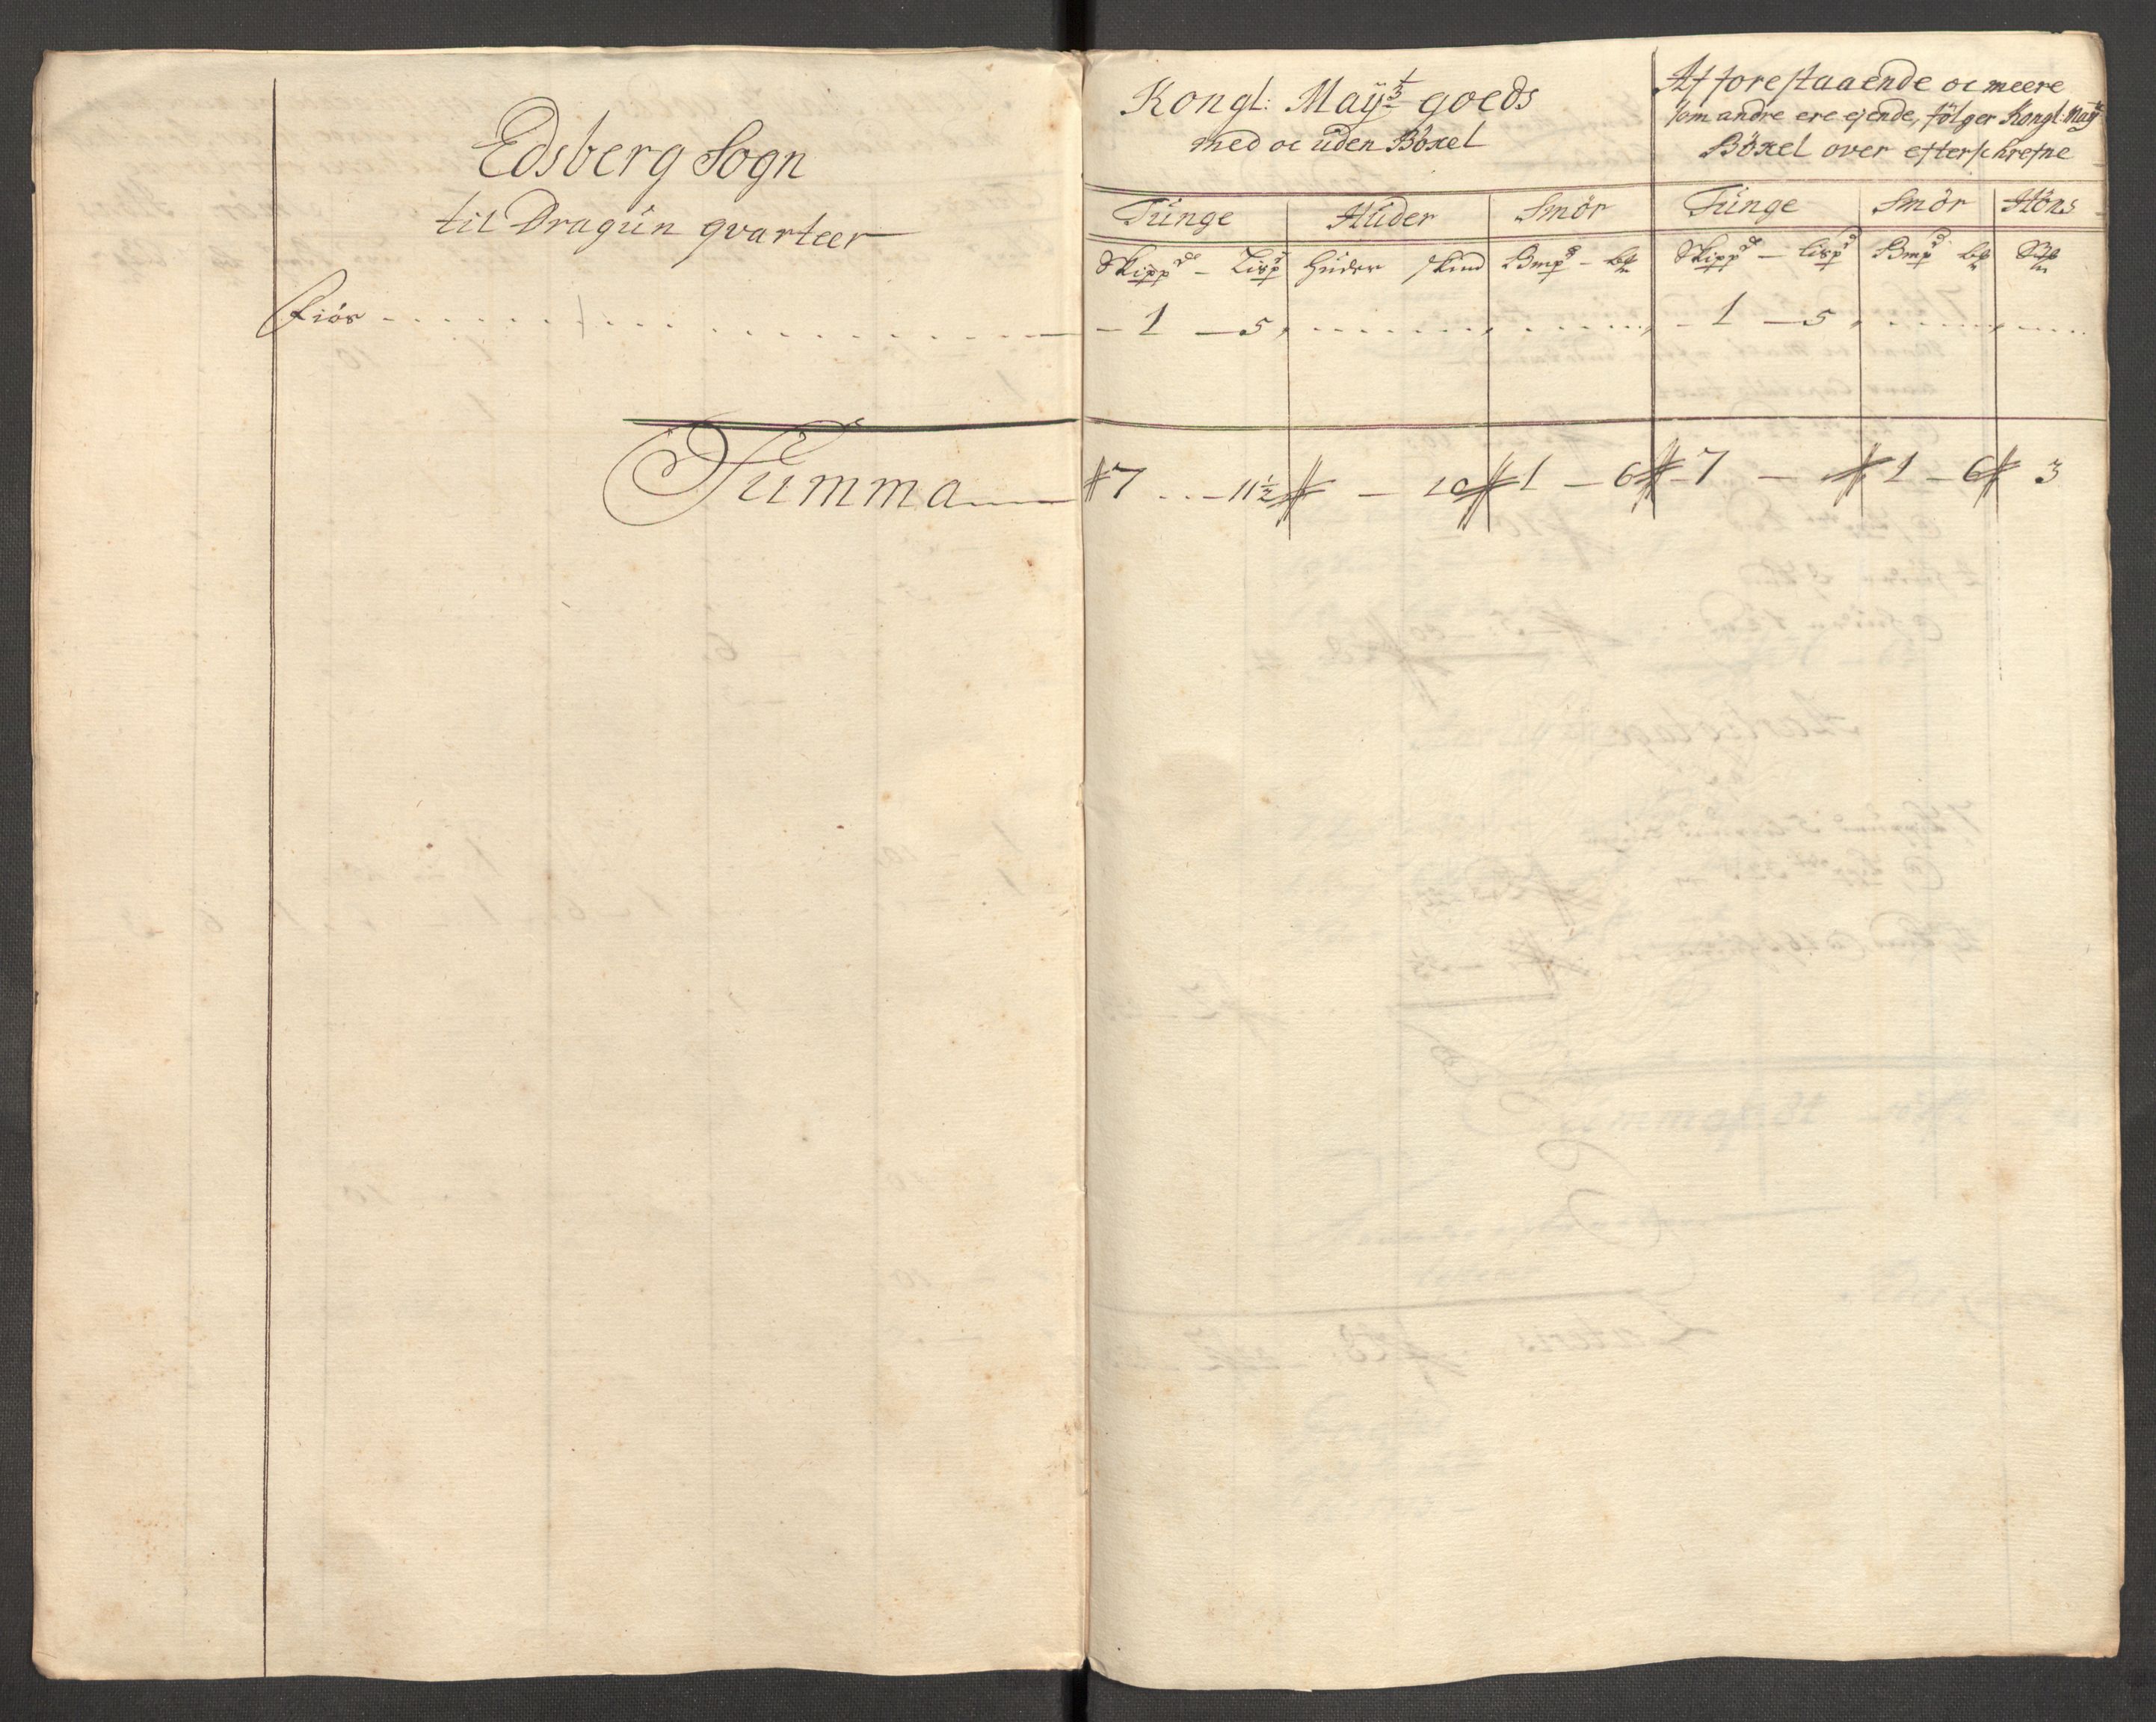 Edsberg Sogn
til Dragün qvarteer
Kongl: Maÿts goeds
med oc uden Böxel
Af forestaaende oc meere
som andre ere ejende, fölger Kongl: Maÿts
Böxel over efterschrefne
Tünge Hüder Smör Tünge Smör Höns
Skippd - Lispd hüder skind Bmpd - Skippd - Lispd Bmpd
Fiös - 1 - 5 - 1 - 5
Summa 7 - 11½ - 10 1 - 6 7 - 1 - 6 3